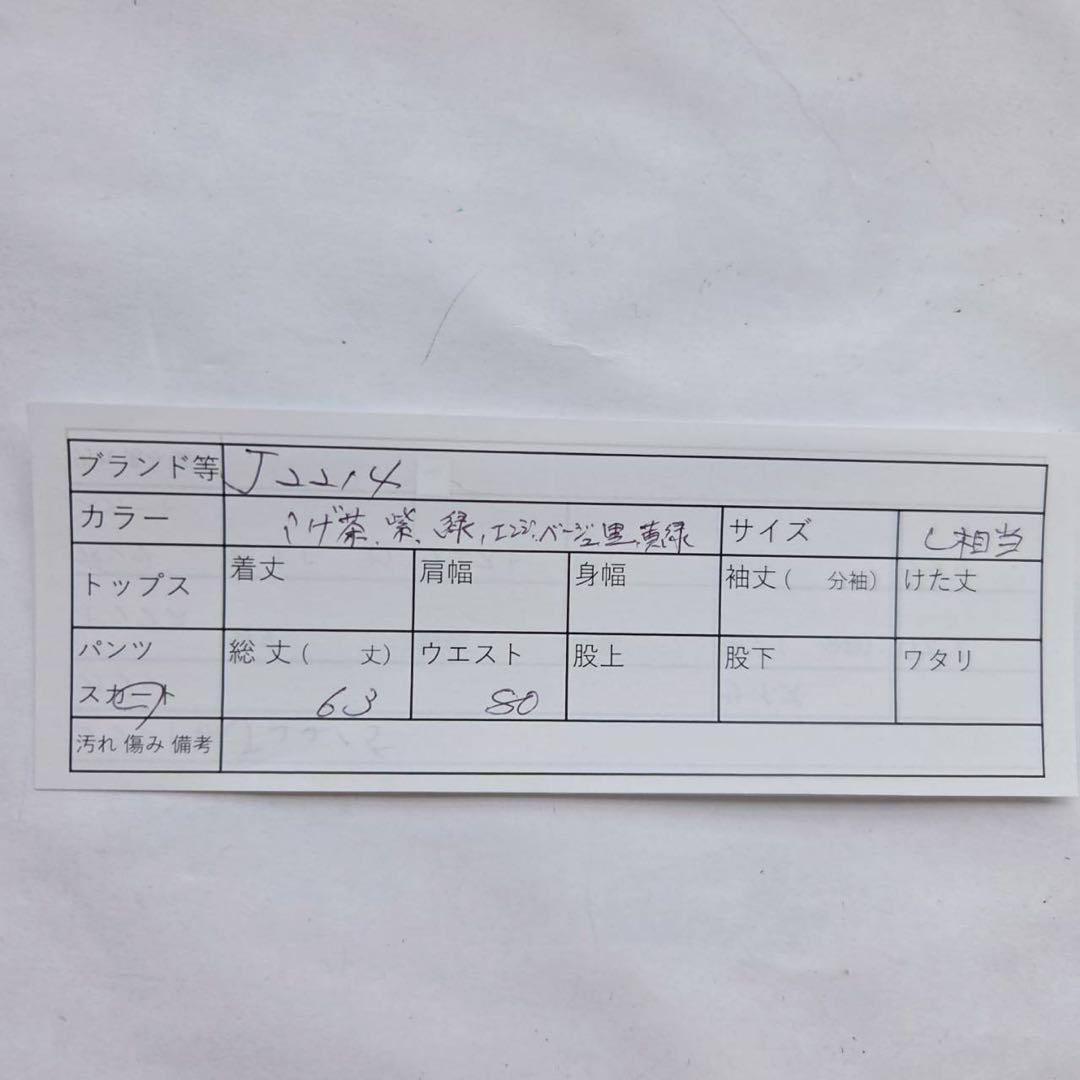 ブランド等 J2214
カラー こげ茶、紫、緑、エンジ、ベージュ、黒、黄緑 サイズ L相当
トップス 着丈 肩幅 身幅 袖丈( 分袖) けた丈
パンツ 総丈( 丈) ウエスト 股上 股下 ワタリ
スカート 63 80
汚れ 傷み 備考